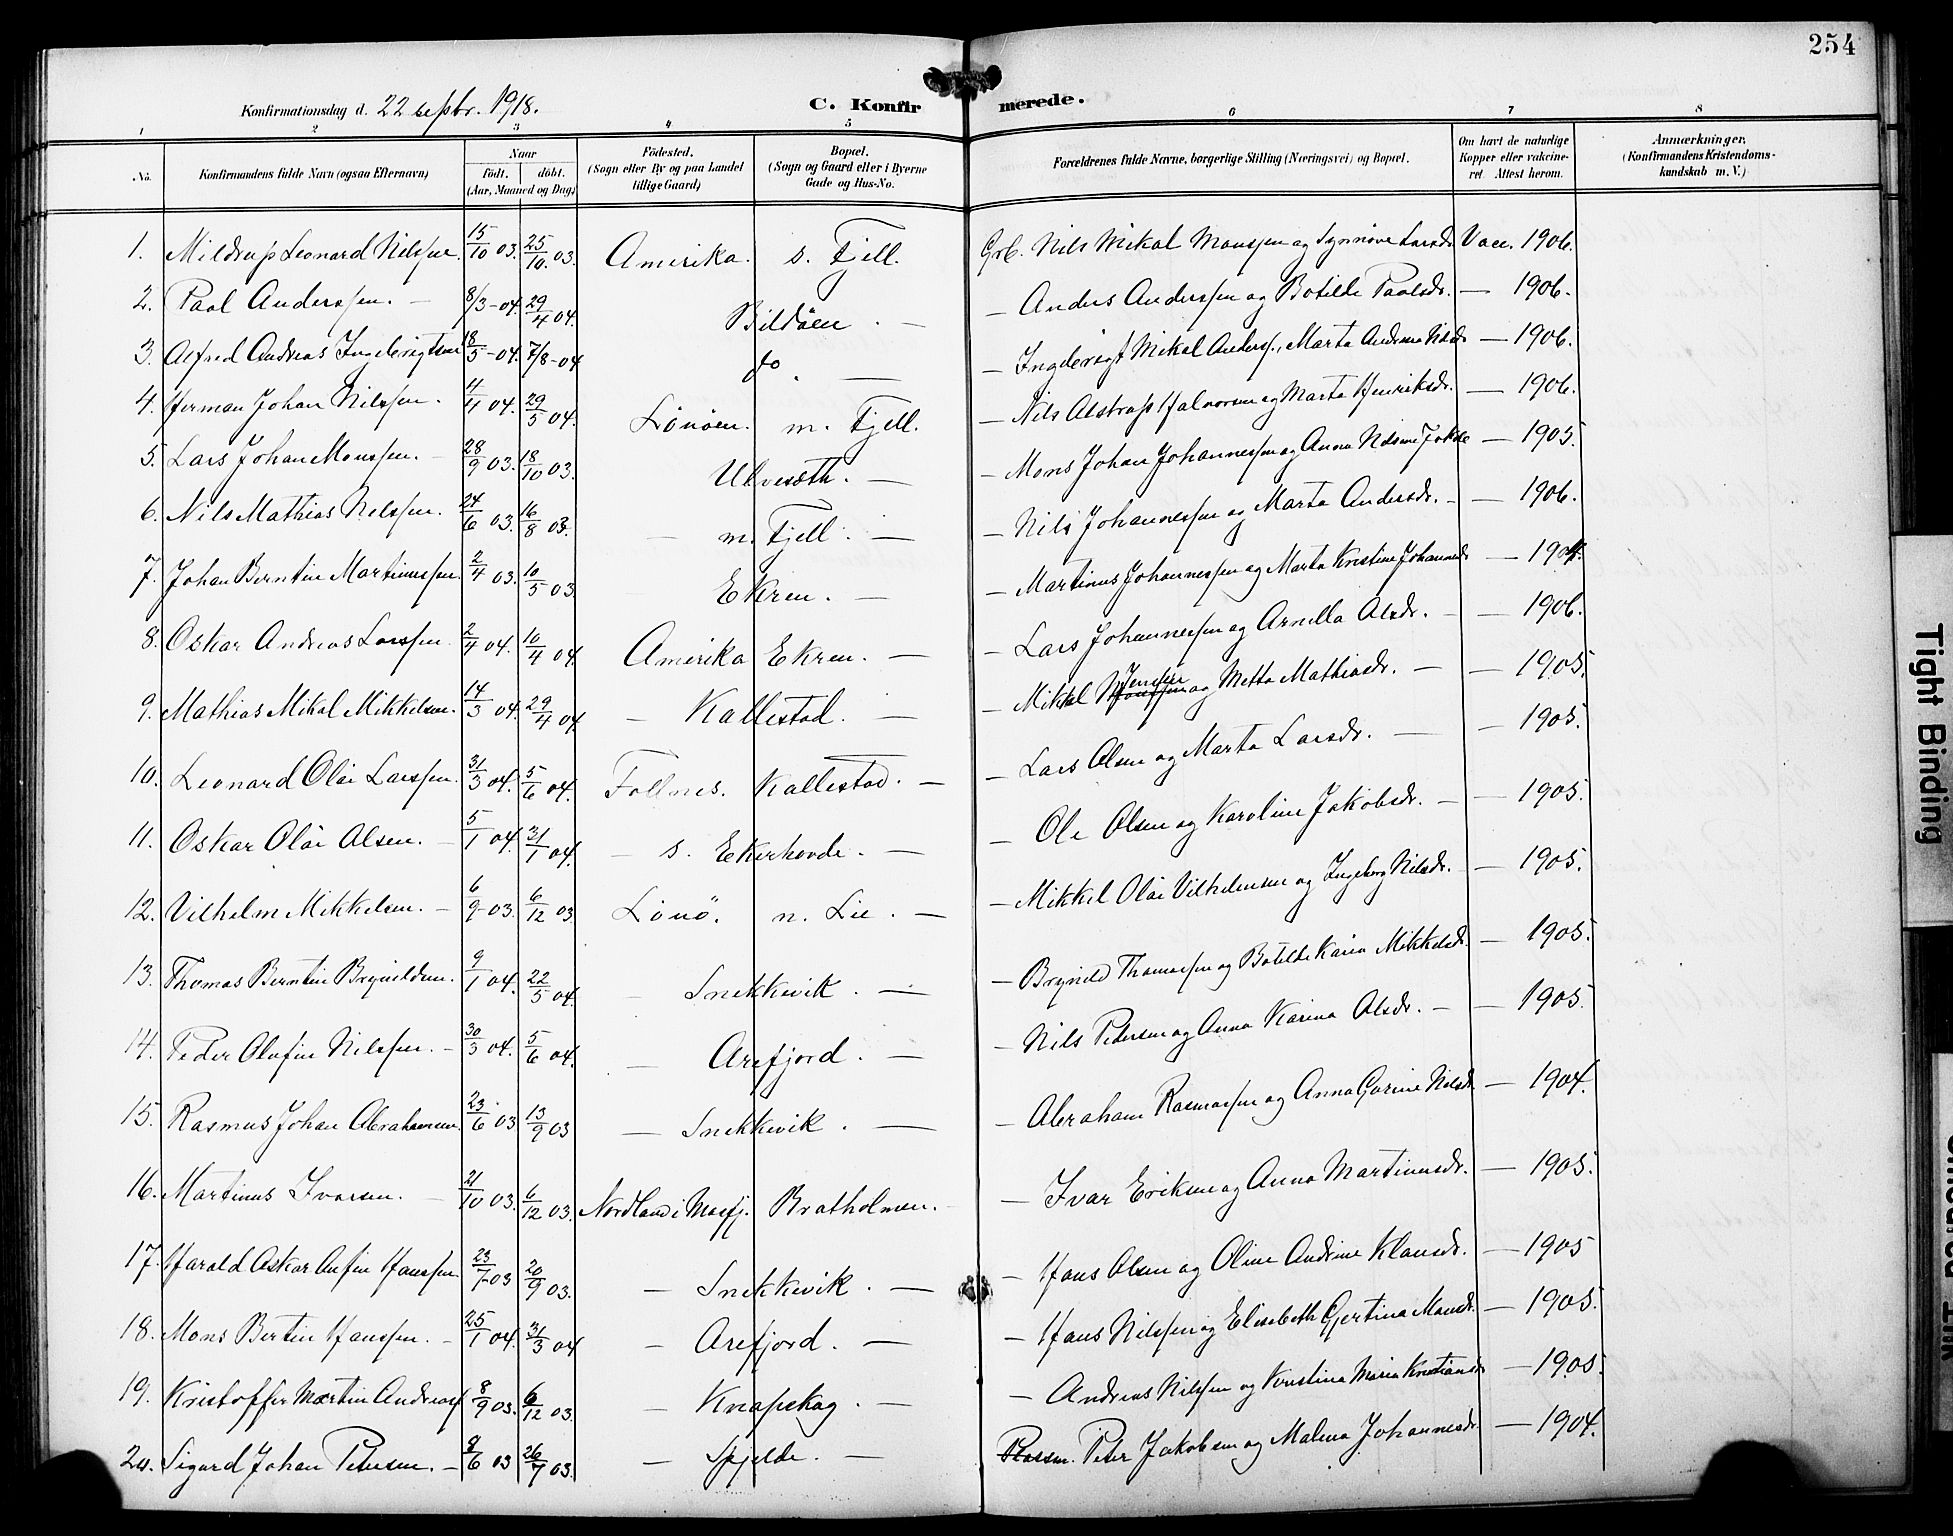 254
Konfirmationsdag d. 22 septbr. 1918.
C. Konfirmerede.
1 2 3 4 5 6 7 8
No.
Konfirmandens fulde Navn (ogsaa Efternavn)
Naar
födt. döbt.
(Aar, Maaned og Dag)
Födested.
(Sogn eller By og paa Landet
tillige Gaard)
Bopæl.
(Sogn og Gaard eller i Byerne
Gade og Hus-No.
Forældrenes fulde Navne, borgerlige Stilling (Næringsvei) og Bopæl.
Om havt de naturlige
Kopper eller vakcine-
ret. Attest herom.
Anmærkninger,
(Konfirmandens Kristendoms-
kundskab m. V.)
1. Mildrup Leonard Nilssen 15/10 03. 25/10. 03. Amerika. s. Fjell. Grb. Nils Mikal Monssen og Synnøve Larsdr. Vacc. 1906.
2. Paol Anderssen. — 8/3-04. 29/4 04. Bildöen. — — Anders Anderssen og Botilde Paolsdr. — 1906.
3. Alfred Andreas Ingebrigtsen 18/5-04. 7/8-04 do. — — Ingebrigt Mikal Anderss., Marta Andrina Nilsdr — 1906.
4. Herman Johan Nilssen. 4/4 04. 29/5 04. Lønöen. m. Fjell. — Nils Alstrup Halvorsen og Marta Henriksdr. — 1906.
5. Lars Johan Monssen. — 28/9 03. 18/10 03. Ulvesæth. — — Mons Johan Johannessen og Anna Nilsine Jakdr — 1905.
6. Nils Mathias Nilssen. 24/6 03. 16/8 03. — m. Fjell. — — Nils Johannessen og Marta Andersdr. — 1906.
7. Johan Berntin Martinussen. 2/4 03. 10/5 03 Ekren. — — Martinus Johannessen og Marta Kristine Johannesdr — 1904.
8. Oskar Andreas Larssen. 2/4 04. 10/4 04. Amerika Ekren. — — Lars Johannessen og Arnilla Alsdr. — 1906.
9. Mathias Mikal Mikkelsen. 14/3 04. 29/4 04 — Kallestad. — — Mikkel Jensen og Metta Mathiasdr. — 1905.
10. Leonard Olai Larssen. 31/3 04. 5/6 04. Follnes. Kallestad. — — Lars Olsen og Marta Larsdr. — 1905.
11. Oskar Olai Olsen. — 5/1 04. 31/1 04. — s. Ekerhovde. — — Ole Olsen og Karoline Jakobsdr. — 1905.
12. Vilhelm Mikkelsen. — 6/9-03. 6/12 03. Lönö. n. Lie. — — Mikkel Olai Vilhelmsen og Ingeborg Nilsdr. — 1905.
13. Thomas Berntin Brynildsen. 9/1 04. 22/5 04. — Snekkevik. — — Brynild Thomassen og Botilde Karia Mikkelsdr. — 1905.
14. Peder Olufin Nilssen. — 30/3 04. 5/6 04. — Arefjord. — — Nils Pedersen og Anna Karina Alsdr. — 1905.
15. Rasmus Johan Abrahamsen. 23/6 03 13/9 03 — Snekkevik. — — Abraham Rasmussen og Anna Gurine Nilsdr — 1904.
16. Martinus Ivarsen. — 21/10 03. 6/12 03. Nordland i Masfj. Bratholmen. — Ivar Eriksen og Anna Martinusdr. — 1905.
17. Harald Oskar Anfin Hanssen. 23/7-03 20/9 03. — Snekkevik. — — Hans Olsen og Oline Andrine Klausdr. — 1905
18. Mons Bertin Hanssen. — 25/1 04. 31/3 04 — Arefjord. — — Hans Nilssen og Elisabeth Gjertina Monsdr. — 1905.
19. Kristoffer Martin Andreass 8/9 03. 6/12 03. — Knapskog. — — Andreas Nilssen og Kristina Maria Kristiansdr — 1905.
20. Sigurd Johan Petersen. — 8/6 03 26/7 03. — Spjelde. — Peter Jakobsen og Malena Johannesdr. — 1904.
Tight Binding